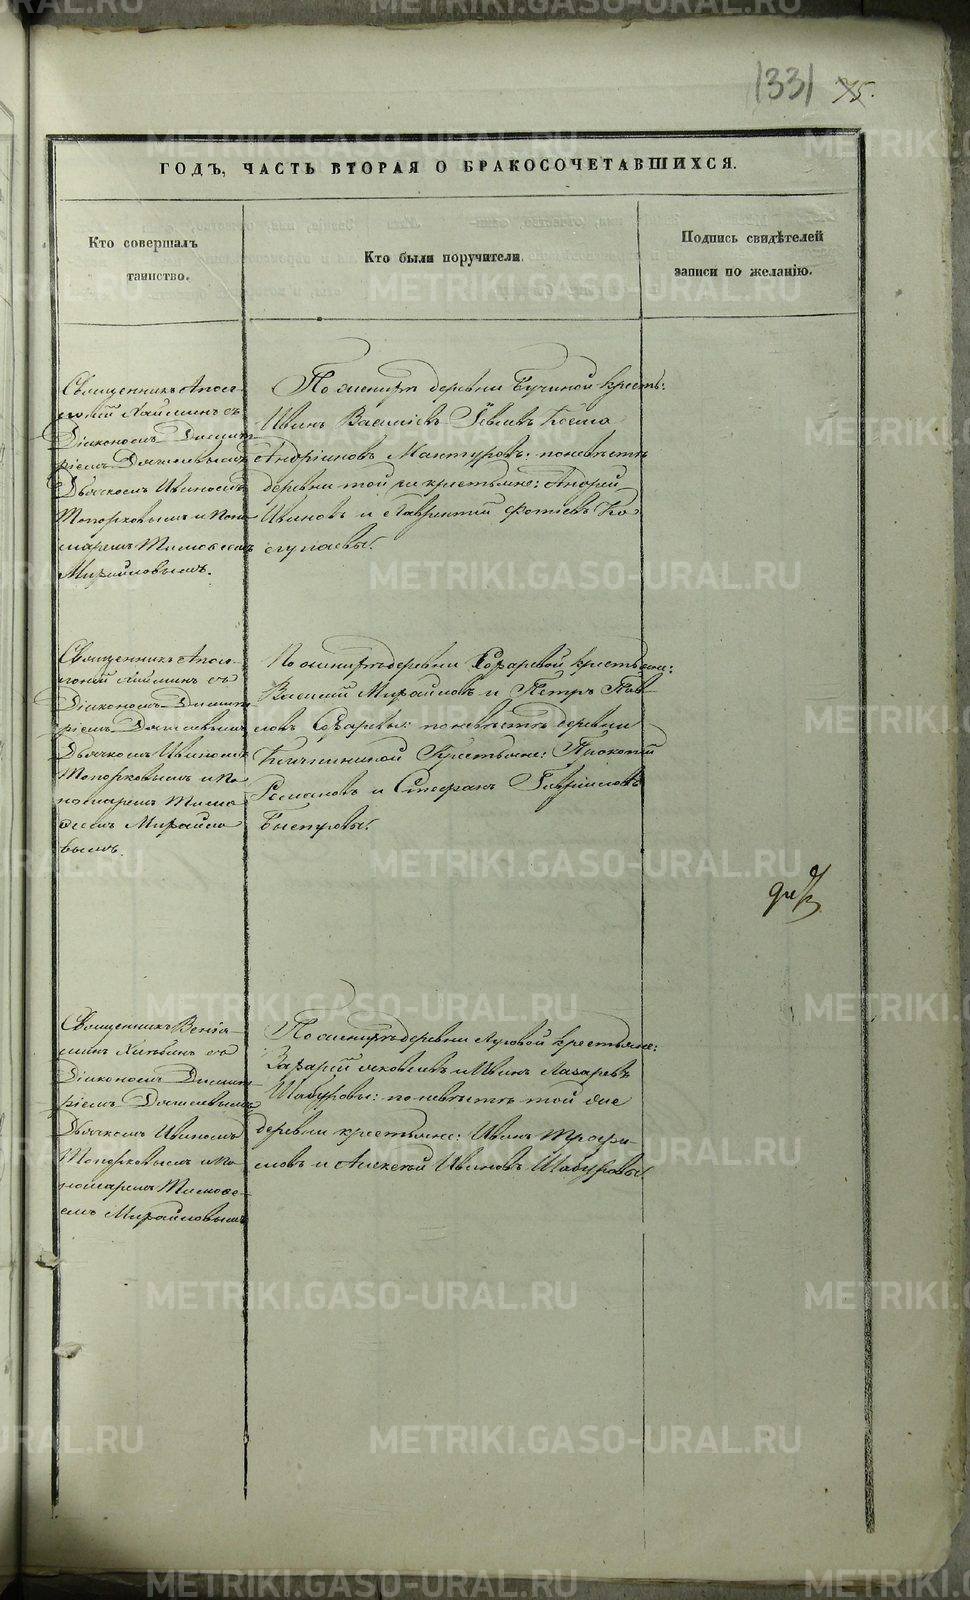 1331 75.
ГОДЪ, ЧАСТЬ ВТОРАЯ О БРАКОСОЧЕТАВШИХСЯ.
Кто совершалъ
таинство.
Кто были поручители.
Подпись свидѣтелей
записи по желанію.
Священникъ Апол-
лоній Ляпминъ съ
Діакономъ Димит
ріемъ
Дьячкомъ Иваномъ
Топорковымъ и Поно
маремъ Тимоѳеемъ
Михайловымъ.
По женихѣ деревни Бучиной крестья:
Иванъ Василіевъ Козма
Андріановъ Мантуровъ: по невѣстѣ
деревни той же крестьяне: Андрей
Ивановъ и Лаврентій Фотіевъ Ко
сулаевы.
Священникъ Апол-
лоній съ
Діакономъ Димит
ріемъ
Дьячкомъ Иваномъ
Топорковымъ и По
номаремъ Тимо
ѳеемъ Михайло
вымъ.
По женихѣ деревни крестьяне:
Василій Михайловъ и Петръ Пав
ловъ по невѣстѣ деревни
крестьяне: Прокопій
Романовъ и Стефанъ Гавриловъ
Быстровы.
Священникъ Веніа-
минъ съ
Діакономъ Димит
ріемъ
Дьячкомъ Иваномъ
Топорковымъ и По
номаремъ Тимоѳе-
емъ Михайловымъ
По женихѣ деревни Луговой крестьяне:
Захарій Яковлевъ и Иванъ Лазаревъ
Шабуровы: по невѣстѣ той же
деревни крестьяне: Иванъ Трофи
мовъ и Алексѣй Ивановъ Шабуровы.
METRIKI.GASO-URAL.RU